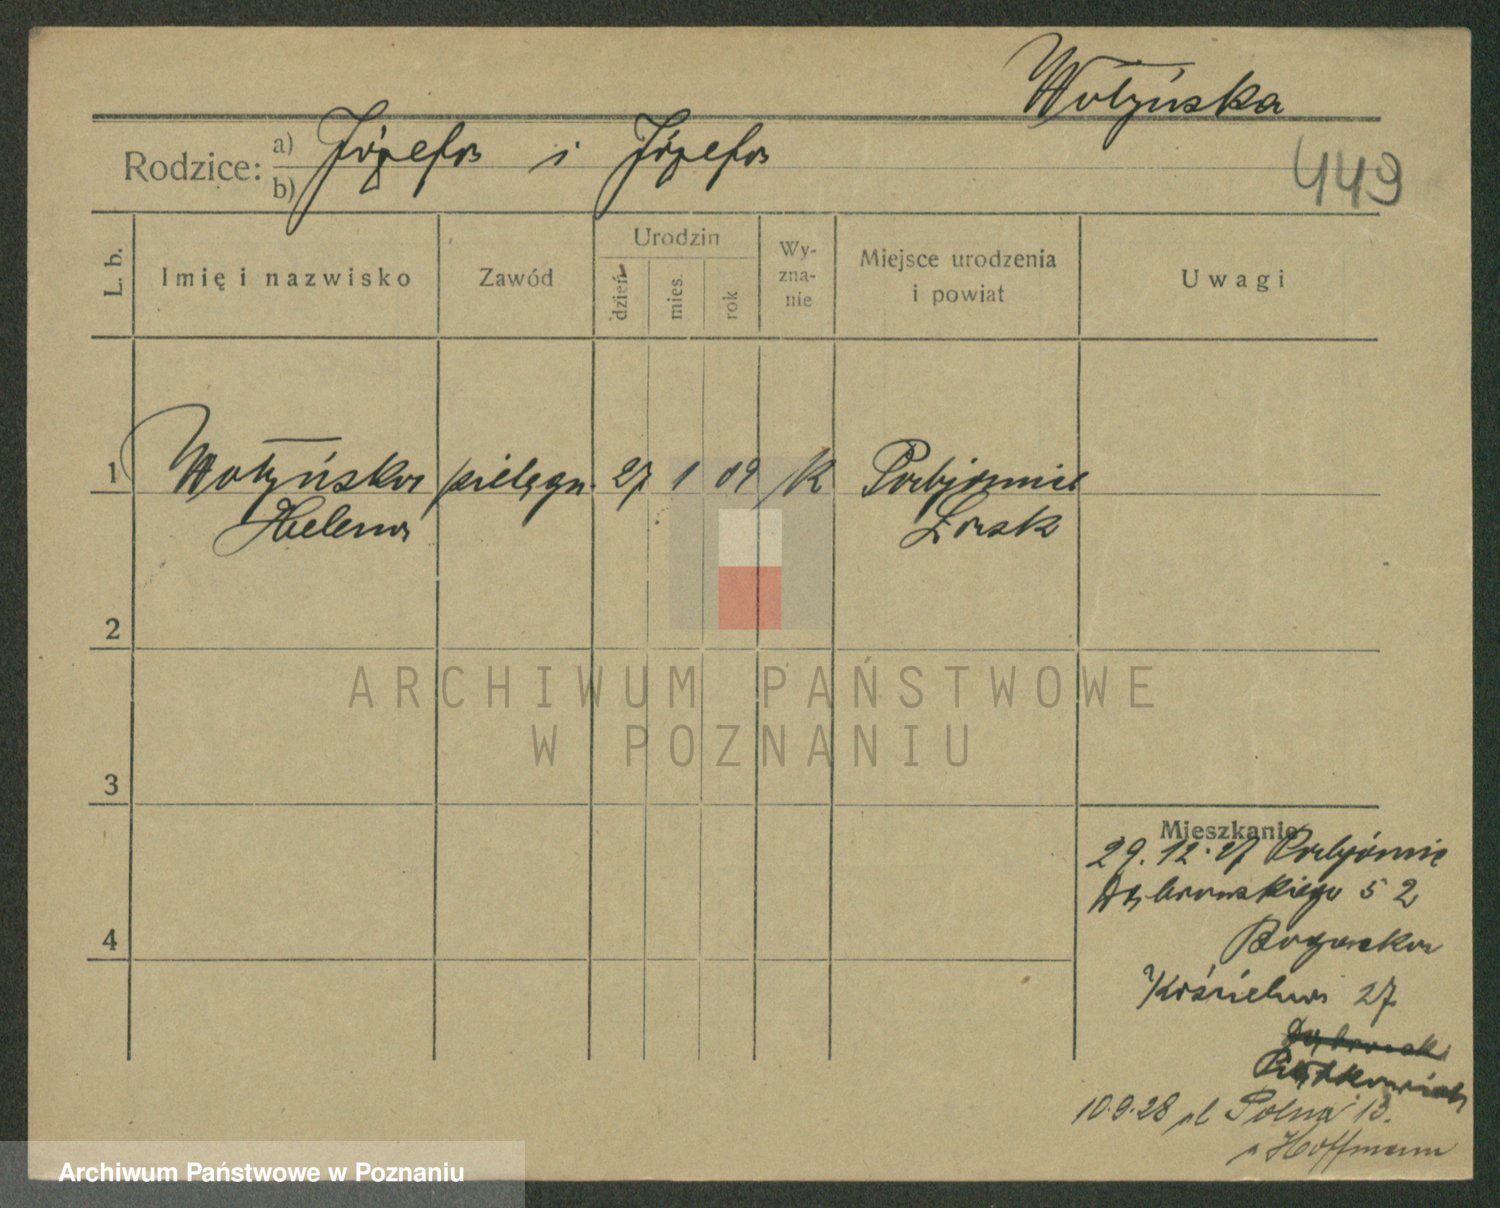 Wołyńska
449
Rodzice: a) Józefa i Józefa
b)
L. b.
Imię i nazwisko
Zawód
Urodzin
dzień
mies.
rok
Wy-
zna-
nie
Miejsce urodzenia
i powiat
Uwagi
1 Wołyńska pielęgn. 27 1 09 K Pabjanice
Helena Łask
2
3
4
Mieszkanie
29.12.27 Pabjanic
Dąbrowskiego 52
Kościelna 27
10.9.28 ul Polna 13.
Hoffmann
ARCHIWUM PAŃSTWOWE
W POZNANIU
Archiwum Państwowe w Poznaniu